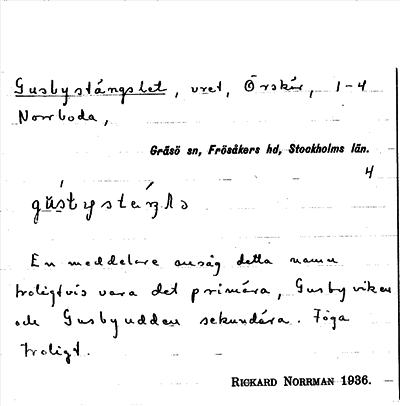 Gusbystångslet, vret, Örskär, 1-4
Norrboda,
Gräsö sn, Frösåkers hd, Stockholms län.
4
En meddelare ansåg detta namn
troligtvis vara det primära, Gusbyviken
och Gusbyudden sekundära. Föga
troligt.
RICKARD NORRMAN 1936.